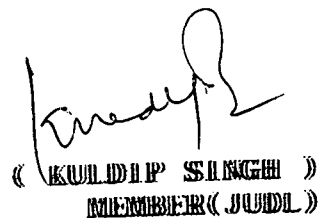 ( KULDIP SINGH )
MEMBER( JUDL)